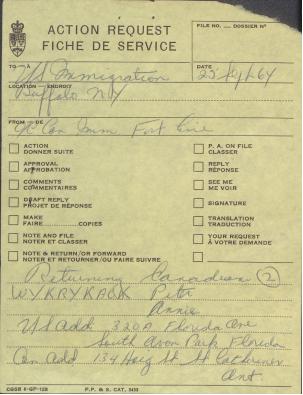 ACTION REQUEST
FICHE DE SERVICE
FILE NO. — DOSSIER Nº
TO — À
US Immigration
DATE
25 Sept 64
LOCATION — ENDROIT
Buffalo NY
FROM — DE
Can Imm. Fort Erie
ACTION
DONNER SUITE
APPROVAL
APPROBATION
COMMENTS
COMMENTAIRES
DRAFT REPLY
PROJET DE RÉPONSE
MAKE
FAIRE ............ COPIES
NOTE AND FILE
NOTER ET CLASSER
NOTE & RETURN/OR FORWARD
NOTER ET RETOURNER/OU FAIRE SUIVRE
P. A. ON FILE
CLASSER
REPLY
RÉPONSE
SEE ME
ME VOIR
SIGNATURE
TRANSLATION
TRADUCTION
YOUR REQUEST
À VOTRE DEMANDE
Returning Canadian (2)
WYKRYKACK Peter
Annie
US Add 320A Florida Ave
South Avon Park Florida
Can Add 134 Haig St St Catherines
Ont.
CGSB 6-GP-12B
P. & S. CAT.